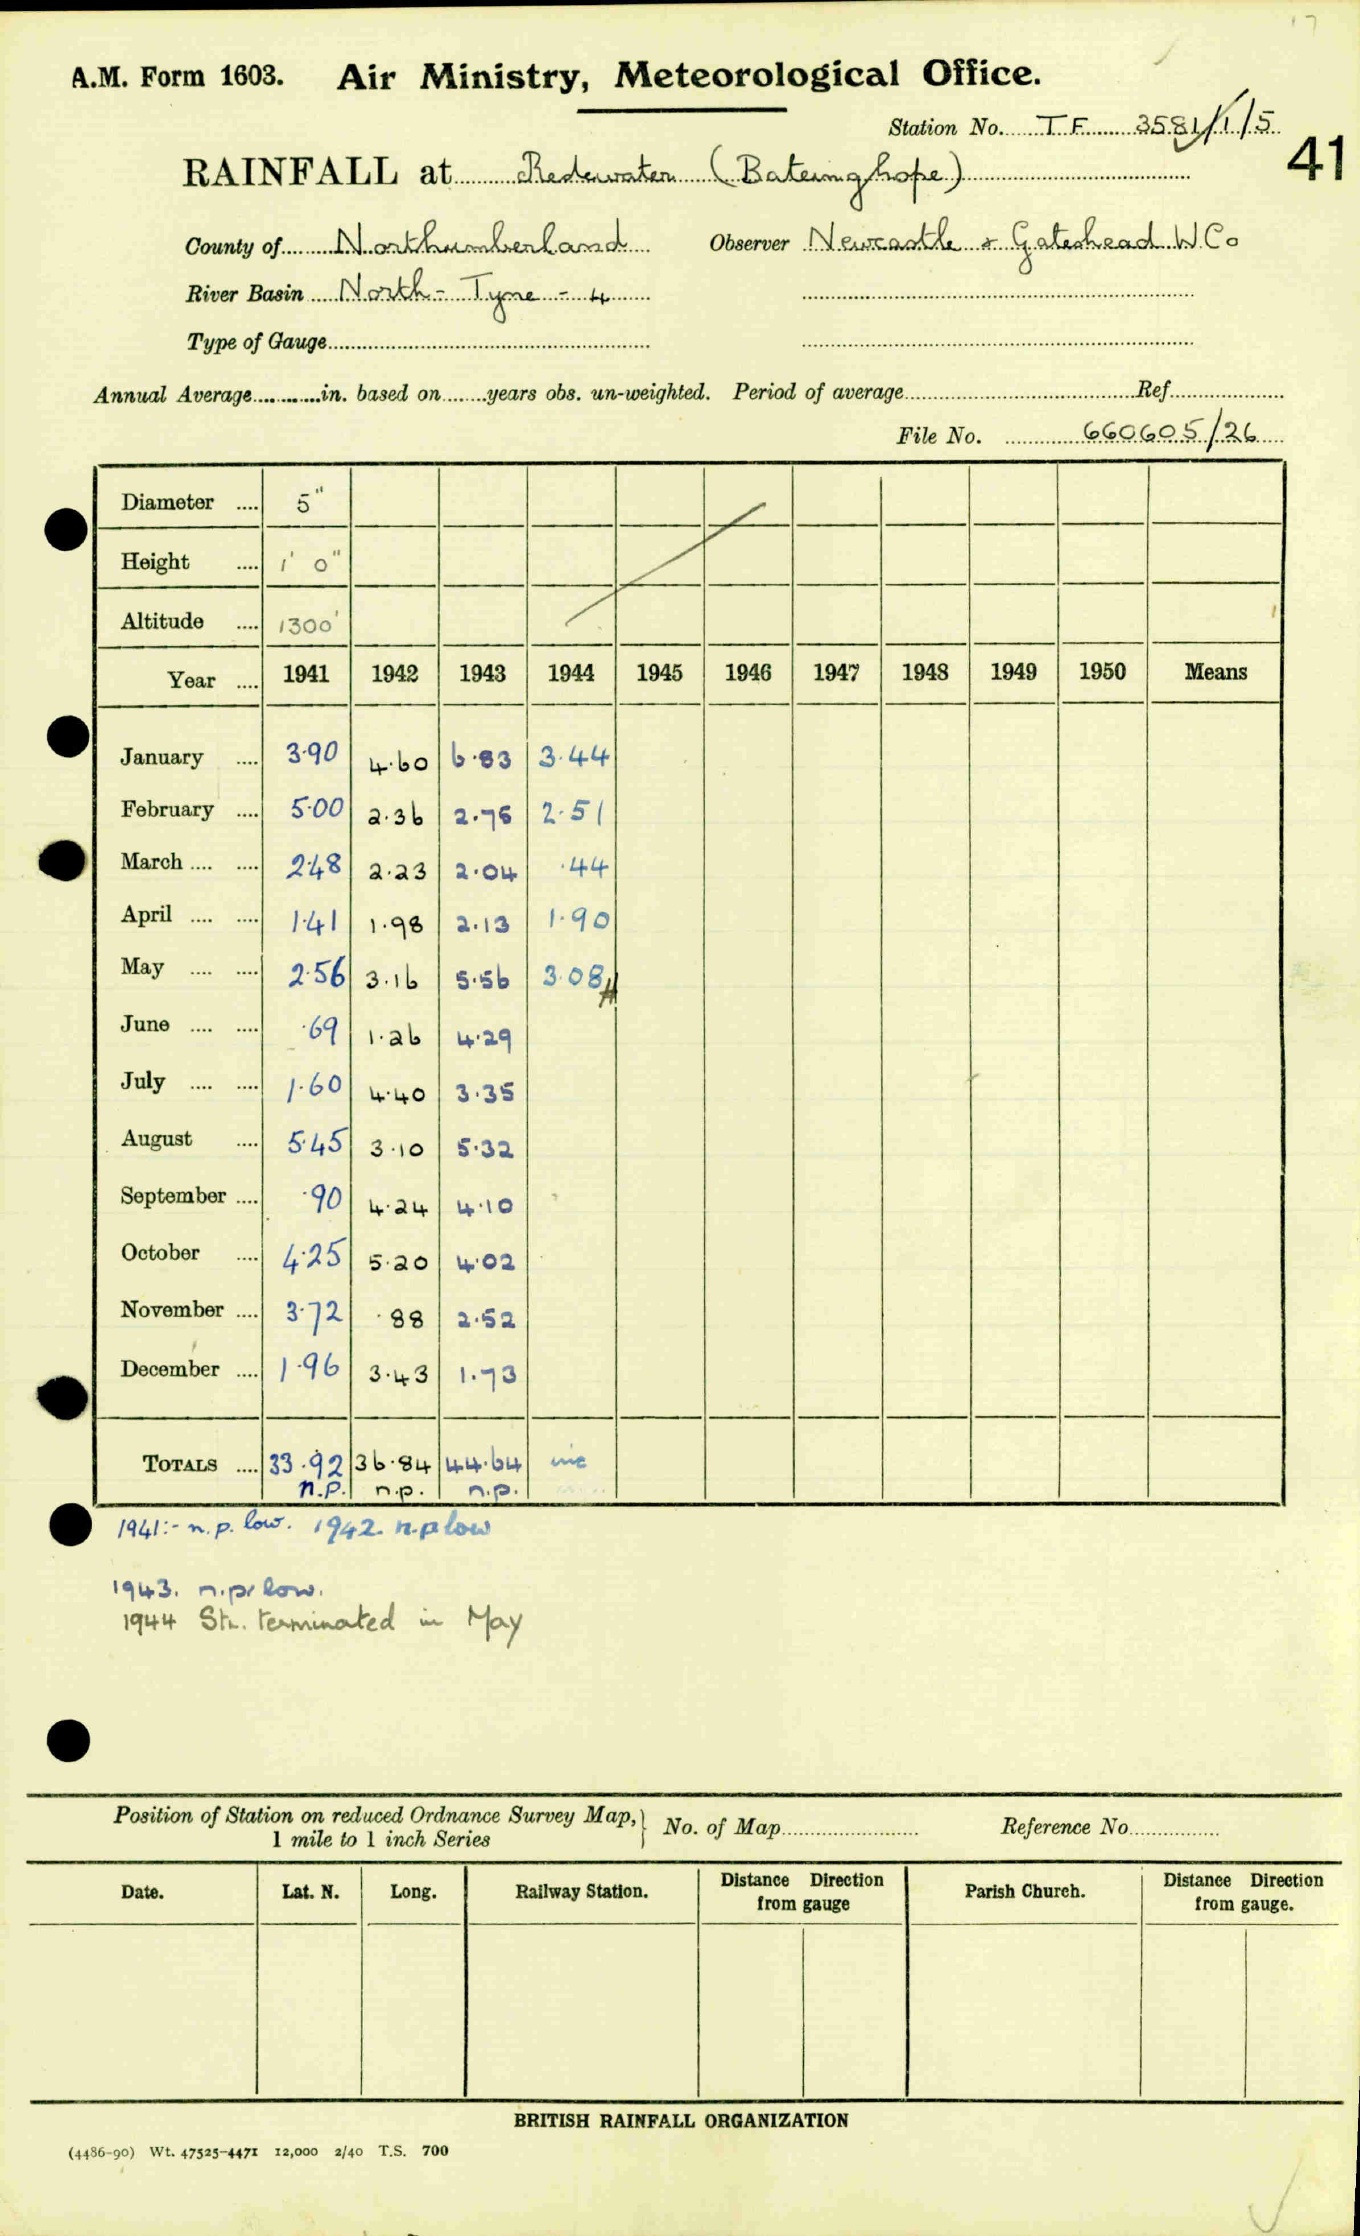 A.M. Form 1603. Air Ministry, Meteorological Office.
Station No. TF 3581/1/5
41
RAINFALL at Redewater (Bateinghope)
County of Northumberland Observer Newcastle & Gateshead W Co
River Basin North-Tyne-4
Type of Gauge
Annual Average in. based on years obs. un-weighted. Period of average Ref
File No. 660605/26
Diameter 5"
Height 1' 0"
Altitude 1300'
Year 1941 1942 1943 1944 1945 1946 1947 1948 1949 1950 Means
January 3·90 4·60 6·83 3·44
February 5·00 2·36 2·75 2·51
March 2·48 2·23 2·04 ·44
April 1·41 1·98 2·13 1·90
May 2·56 3·16 5·56 3·08
June ·69 1·26 4·29
July 1·60 4·40 3·35
August 5·45 3·10 5·32
September ·90 4·24 4·10
October 4·25 5·20 4·02
November 3·72 ·88 2·52
December 1·96 3·43 1·73
TOTALS 33·92 36·84 44·64 inc
n.p. n.p. n.p.
1941:- n.p. low. 1942. n.p low
1943. n.p. low.
1944 Stn. terminated in May
Position of Station on reduced Ordnance Survey Map, No. of Map Reference No
1 mile to 1 inch Series
Date. Lat. N. Long. Railway Station. Distance Direction from gauge Parish Church. Distance Direction from gauge.
BRITISH RAINFALL ORGANIZATION
(4486-90) Wt. 47525-4471 12,000 2/40 T.S. 700